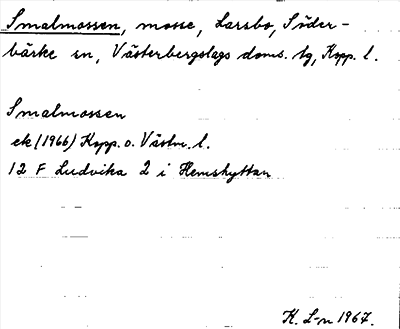 Smalmossen, mosse, Larsbo, Söder-
bärke sn, Västerbergslags doms. tg, Kopp. l.
Smalmossen
ek (1966) Kopp. o. Västm. l.
12 F Ludvika 2 i Hemshyttan
K. L-n 1967.